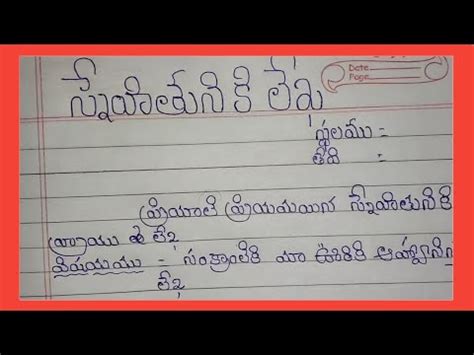 స్నేహితునికి లేఖ
Date
Page
స్థలము =
తేది =
ప్రియాతి ప్రియమయిన స్నేహితునికి
వ్రాయు లేఖ
విషయము - సంక్రాంతికి మా ఊరికి ఆహ్వాన
లేఖ